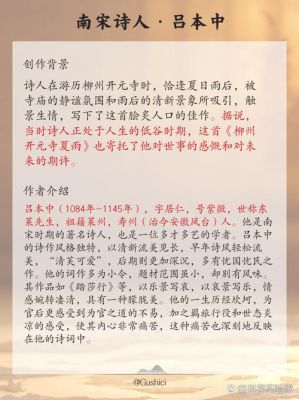 南宋诗人·吕本中
创作背景
诗人在游历柳州开元寺时，恰逢夏日雨后，被
寺庙的静谧氛围和雨后的清新景象所吸引，触
景生情，写下了这首脍炙人口的佳作。据说，
当时诗人正处于人生的低谷时期，这首《柳州
开元寺夏雨》也寄托了他对世事的感慨和对未
来的期许。
作者介绍
吕本中（1084年-1145年），字居仁，号紫微，世称东
莱先生，祖籍莱州，寿州（治今安徽凤台）人。他是南
宋时期的著名诗人，也是一位多才多艺的学者。吕本中
的诗作风格独特，以清新流美见长，早年诗风轻松流
美，“清笑可爱”，后期则更加深沉，多有忧国忧民之
作。他的词作多为小令，题材范围虽小，却别有风味。
其作品如《踏莎行》等，以乐景写哀，以哀景写乐，情
感婉转凄清，具有一种朦胧美。他的一生历经坎坷，为
官后更感受到为官之道的不易，加之羁旅行役和世态炎
凉的感受，使其内心非常痛苦，这种痛苦也深刻地反映
在他的诗词中。
@Gushici